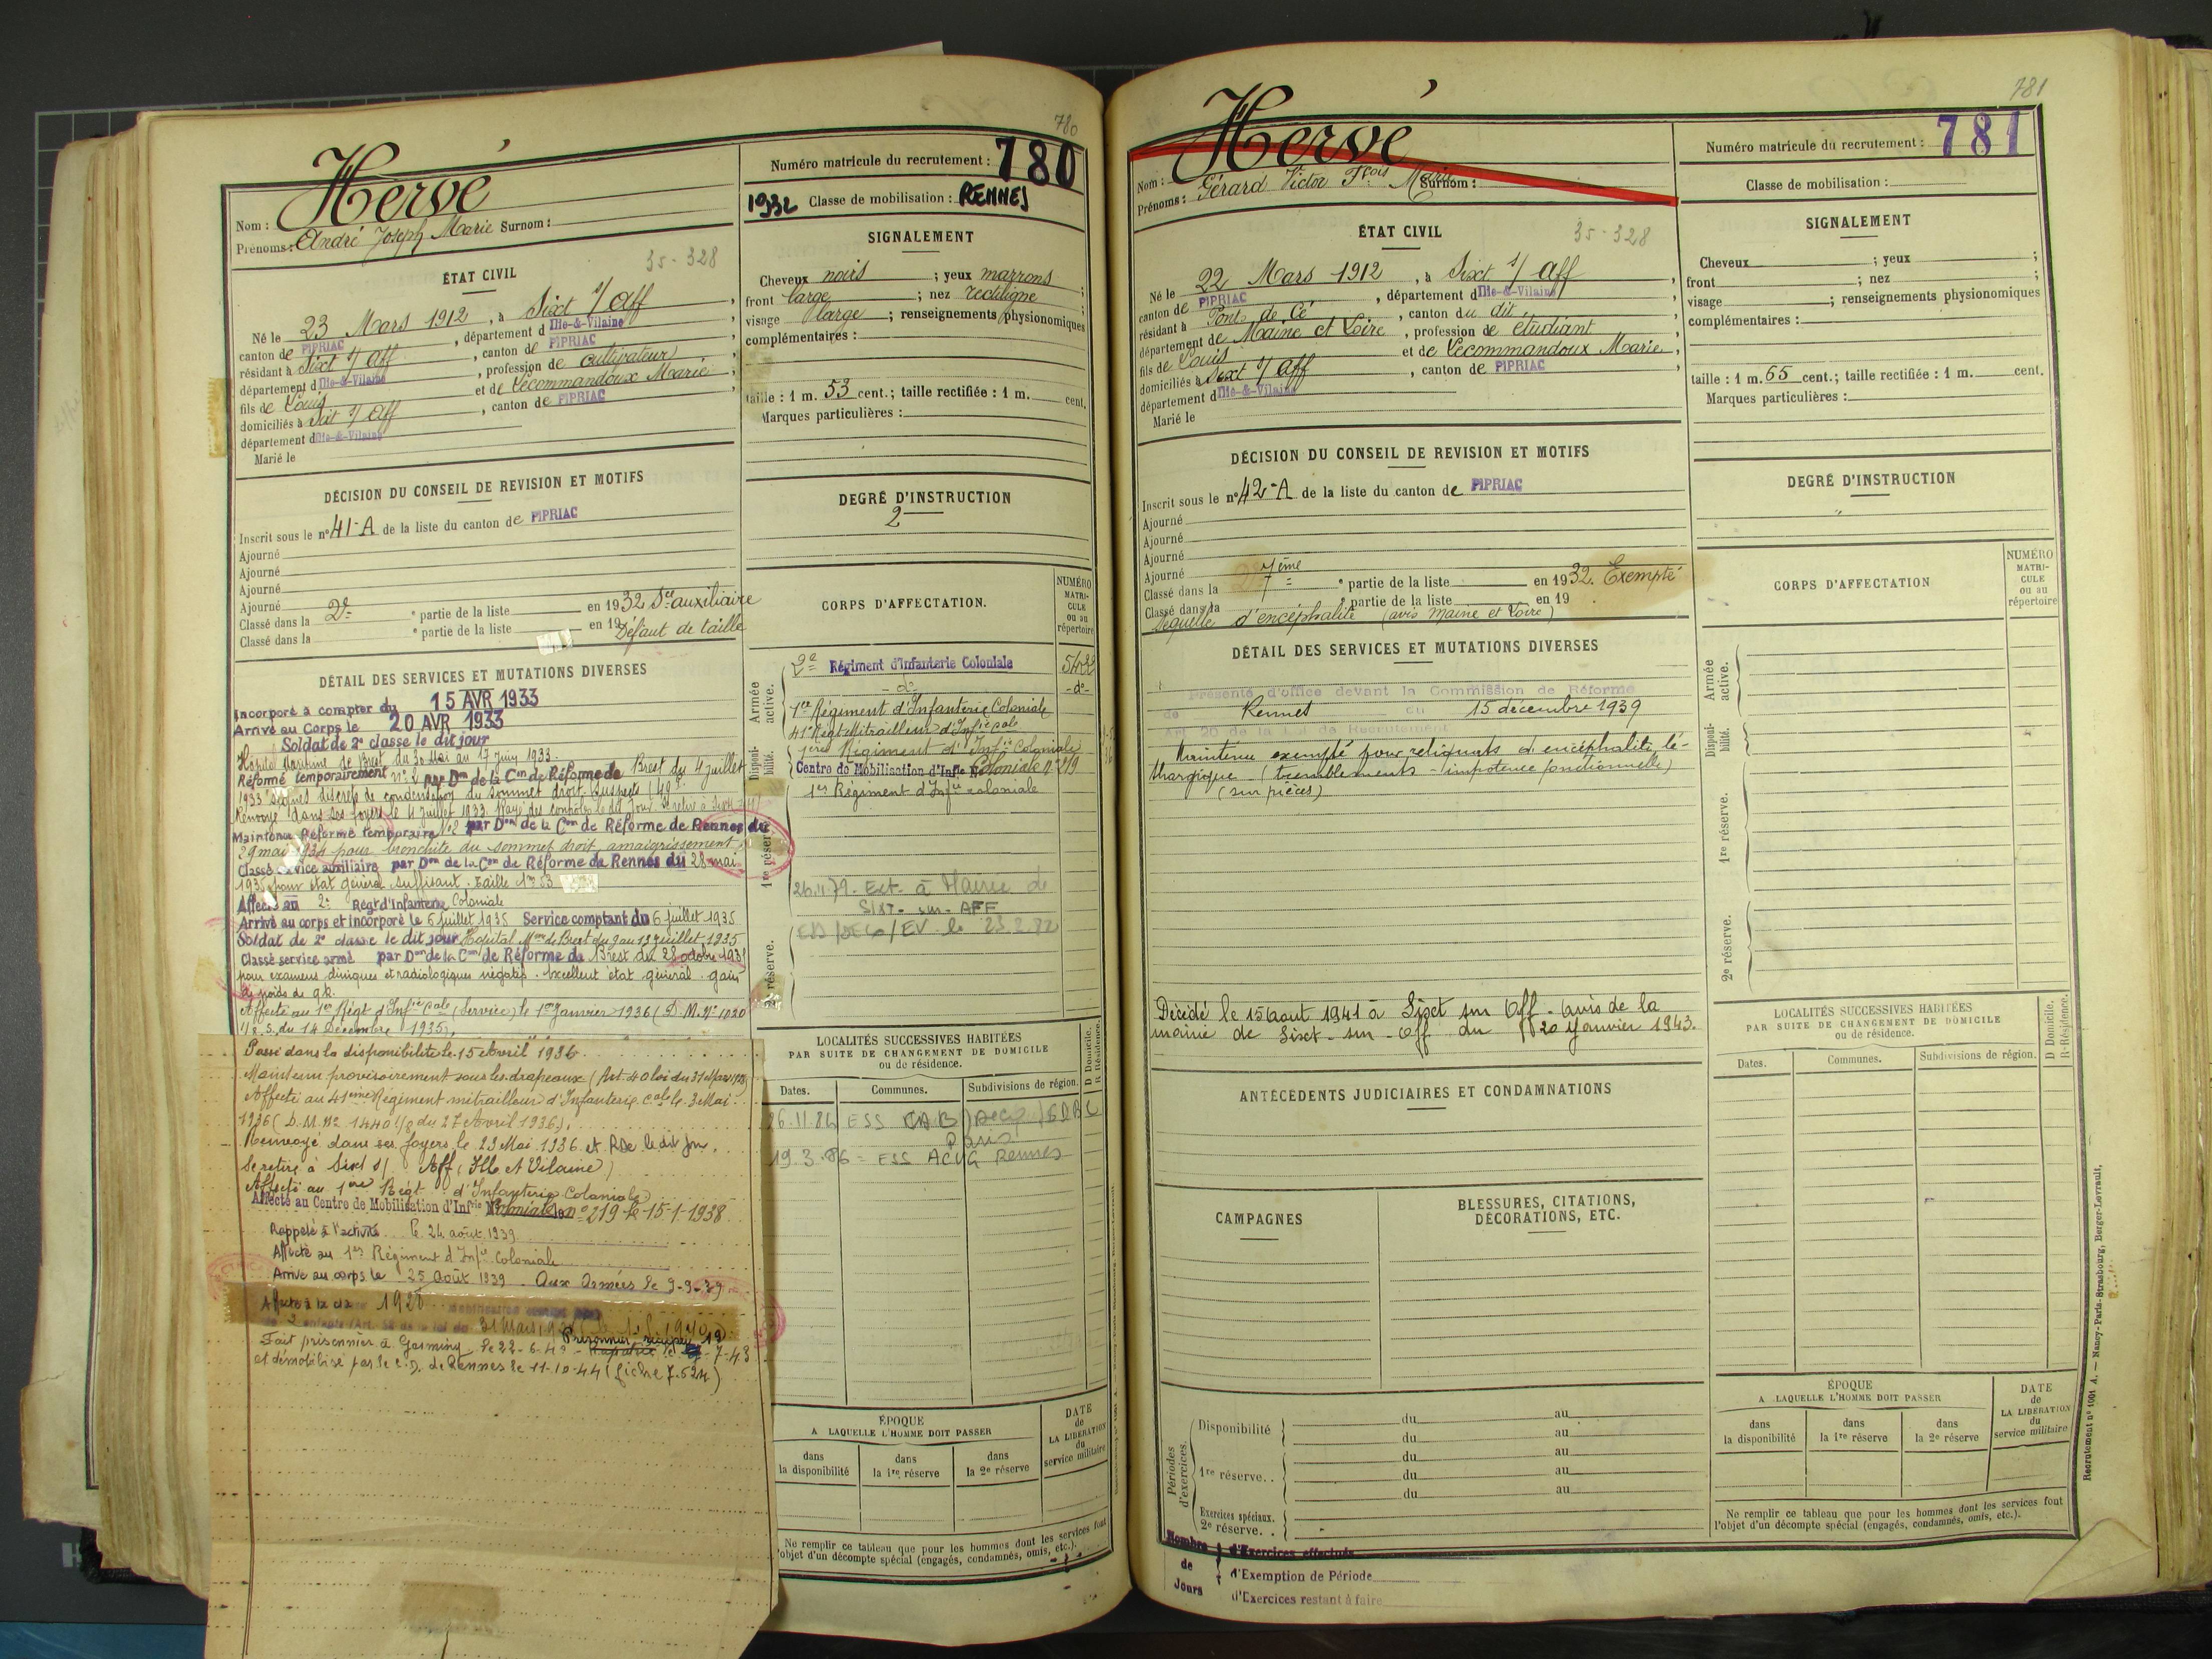 780
Hervé
Nom :
Prénoms : André Joseph Marie Surnom :
35-328
ÉTAT CIVIL
Né le 23 Mars 1912, à Sixt s/ Aff,
canton de PIPRIAC, département d Ille-&-Vilaine,
résidant à Sixt s/ Aff, canton de PIPRIAC
département d Ille-&-Vilaine, profession de cultivateur,
fils de Louis et de Lecommandoux Marie,
domiciliés à Sixt s/ Aff, canton de PIPRIAC,
département d Ille-&-Vilaine
Marié le
DÉCISION DU CONSEIL DE REVISION ET MOTIFS
Inscrit sous le n° 41-A de la liste du canton de PIPRIAC
Ajourné
Ajourné
Ajourné
Ajourné
Classé dans la 2e ° partie de la liste en 1932 Sce auxiliaire
Classé dans la ° partie de la liste en 19 Défaut de taille
DÉTAIL DES SERVICES ET MUTATIONS DIVERSES
Incorporé à compter du 15 AVR 1933
Arrivé au Corps le 20 AVR 1933
Soldat de 2e classe le dit jour
Hôpital Maritime de Brest du 30 Mai au 17 juin 1933.
Réformé temporairement n° 2 par Don de la Con de Réforme de Brest du 4 juillet
1933 signes discrets de condensation du sommet droit suspects
Renvoyé dans ses foyers le 4 juillet 1933. Rayé des contrôles le dit jour. Se retire à Sixt s/ Aff
Maintenu Réformé temporaire N°2 par Don de la Con de Réforme de Rennes du
29 mai 1934 pour bronchite du sommet droit amaigrissement.
Classé service auxiliaire par Don de la Con de Réforme de Rennes du 28 mai
1935 pour état général suffisant. Taille 1m53
Affecté au 2e Régt d'Infanterie Coloniale
Arrivé au corps et incorporé le 6 juillet 1935 Service comptant du 6 juillet 1935
Soldat de 2e classe le dit jour Hôpital Mme de Brest du 9 au 13 juillet 1935
Classé service armé par Don de la Con de Réforme de Brest du 28 octobre 1935
pour examens cliniques et radiologiques négatifs. Excellent état général. gain
de poids de 9k.
Affecté au 1er Régt d'Infie Cale (Service) le 1er Janvier 1936 (D.M. N° 1020
1/8.S. du 14 Décembre 1935).
Passé dans la disponibilité le 15 Avril 1936
Maintenu provisoirement sous les drapeaux (Art. 40 loi du 31 Mars 1928)
Affecté au 41ème Régiment mitrailleur d'Infanterie Cale le 3 Mai
1936 (D.M. N° 1440 1/8 du 27 Avril 1936).
Renvoyé dans ses foyers le 23 Mai 1936 et Rde le dit jour.
Se retire à Sixt s/ Aff (Ille et Vilaine)
Affecté au 1ère Régt d'Infanterie Coloniale
Affecté au Centre de Mobilisation d'Infrie Coloniale n° 219 le 15-1-1938
Rappelé à l'activité le 24 août 1939
Affecté au 1er Régiment d'Infie Coloniale
Arrivé au corps le 25 Août 1939 Aux Armées le 9-9-39
Affecté à la classe 1928
de 2 enfants (Art. 58 de la loi du 31 Mars 1928)
Fait prisonnier à Germiny le 22-6-40 - Rapatrié le 7-43
et démobilisé par le C.D. de Rennes le 11-10-44 (fiche 7.524)
Numéro matricule du recrutement : 780
1932 Classe de mobilisation : RENNES
SIGNALEMENT
Cheveux noirs ; yeux marrons ;
front large ; nez rectiligne ;
visage large ; renseignements physionomiques
complémentaires :
taille : 1 m. 53 cent.; taille rectifiée : 1 m. cent.
Marques particulières :
DEGRÉ D'INSTRUCTION
2
CORPS D'AFFECTATION.
NUMÉRO MATRICULE ou au répertoire
Armée active.
2e Régiment d'Infanterie Coloniale
-do- -do-
1er Régiment d'Infanterie Coloniale
41e Régt Mitrailleur d'Infie Cale
Disponibilité.
1ère Régiment d'Infie Coloniale
Centre de Mobilisation d'Infie Coloniale n° 219
1er Régiment d'Infie coloniale
1re réserve.
26.11.79. Ext. à Mairie de
SIXT-sur-AFF
2e réserve.
LOCALITÉS SUCCESSIVES HABITÉES
PAR SUITE DE CHANGEMENT DE DOMICILE
ou de résidence.
Dates. Communes. Subdivisions de région. D Domicile. R Résidence.
26.11.84 ESS CAB
Paris
19.3.86 = ESS ACVG Rennes
ÉPOQUE
A LAQUELLE L'HOMME DOIT PASSER
dans la disponibilité
dans la 1re réserve
dans la 2e réserve
DATE de LA LIBÉRATION du service militaire
Ne remplir ce tableau que pour les hommes dont les services font
l'objet d'un décompte spécial (engagés, condamnés, omis, etc.).
781
Hervé
Nom :
Prénoms : Gérard Victor Fçois Marie Surnom :
35-328
ÉTAT CIVIL
Né le 22 Mars 1912, à Sixt s/ Aff,
canton de PIPRIAC, département d Ille-&-Vilaine,
résidant à Ponts de Cé, canton du dit,
département de Maine et Loire, profession de étudiant,
fils de Louis et de Lecommandoux Marie,
domiciliés à Sixt s/ Aff, canton de PIPRIAC
département d Ille-&-Vilaine
Marié le
DÉCISION DU CONSEIL DE REVISION ET MOTIFS
Inscrit sous le n° 42-A de la liste du canton de PIPRIAC
Ajourné
Ajourné
Ajourné
Ajourné
Classé dans la 7ème ° partie de la liste en 1932. Exempté
Classé dans la ° partie de la liste en 19
Séquelle d'encéphalite (avis Maine et Loire)
DÉTAIL DES SERVICES ET MUTATIONS DIVERSES
Présenté d'office devant la Commission de Réforme
de Rennes du 15 décembre 1939
Art. 20 de la Loi de Recrutement
Maintenu exempté pour reliquats d'encéphalite lé-
thargique (tremblements - impotence fonctionnelle)
(sur pièces)
Décédé le 15 Aout 1941 à Sixt sur Aff - avis de la
mairie de Sixt-sur-Aff du 20 Janvier 1943.
ANTÉCÉDENTS JUDICIAIRES ET CONDAMNATIONS
CAMPAGNES
BLESSURES, CITATIONS,
DÉCORATIONS, ETC.
Périodes d'exercices.
Disponibilité du au
du au
1re réserve. . du au
du au
du au
Exercices spéciaux.
2e réserve. .
Nombre de Jours
d'Exercices effectués
d'Exemption de Période
d'Exercices restant à faire
Numéro matricule du recrutement : 781
Classe de mobilisation :
SIGNALEMENT
Cheveux ; yeux ;
front ; nez ;
visage ; renseignements physionomiques
complémentaires :
taille : 1 m. 65 cent.; taille rectifiée : 1 m. cent.
Marques particulières :
DEGRÉ D'INSTRUCTION
CORPS D'AFFECTATION
NUMÉRO MATRICULE ou au répertoire
Armée active.
Disponibilité.
1re réserve.
2e réserve.
LOCALITÉS SUCCESSIVES HABITÉES
PAR SUITE DE CHANGEMENT DE DOMICILE
ou de résidence.
Dates. Communes. Subdivisions de région. D Domicile. R-Résidence.
ÉPOQUE
A LAQUELLE L'HOMME DOIT PASSER
dans la disponibilité
dans la 1re réserve
dans la 2e réserve
DATE de LA LIBÉRATION du service militaire
Ne remplir ce tableau que pour les hommes dont les services font
l'objet d'un décompte spécial (engagés, condamnés, omis, etc.).
Recrutement n° 1001 A. — Nancy-Paris-Strasbourg, Berger-Levrault.